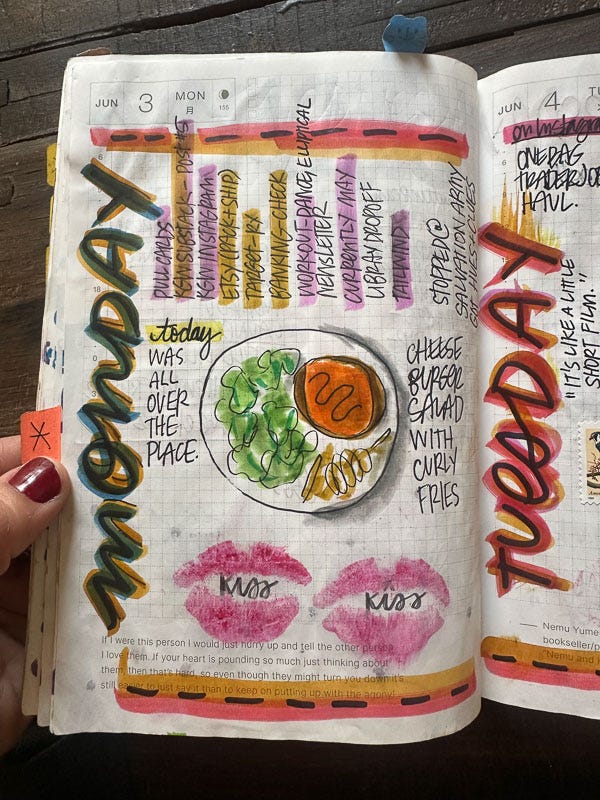 JUN 3 MON
月
155
MONDAY
PULL CARDS
KSW SUBSTACK -
KSW INSTAGRAM
ETSY (PACK + SHIP)
TARGET-RX
BANKING-CHECK
WORKOUT-DANCE, ELLIPTICAL
NEWSLETTER
CURRENTLY MAY
LIBRAY DROPOFF
TAILWIND
STOPPED @
SALVATION ARMY
GOT HUES + CLUES
today
WAS
ALL
OVER
THE
PLACE.
CHEESE
BURGER
SALAD
WITH
CURLY
FRIES
kiss
kiss
If I were this person I would just hurry up and tell the other person
I love them. If your heart is pounding so much just thinking about
them, then that's hard, so even though they might turn you down it's
still easier to just say it than to keep on putting up with the agony!
JUN 4 TU
on Instagram
ONE BAG
TRADER JOE
HAUL.
TUESDAY
"IT'S LIKE A LITTLE
SHORT FILM."
— Nemu Yume
bookseller/p
"Nemu and